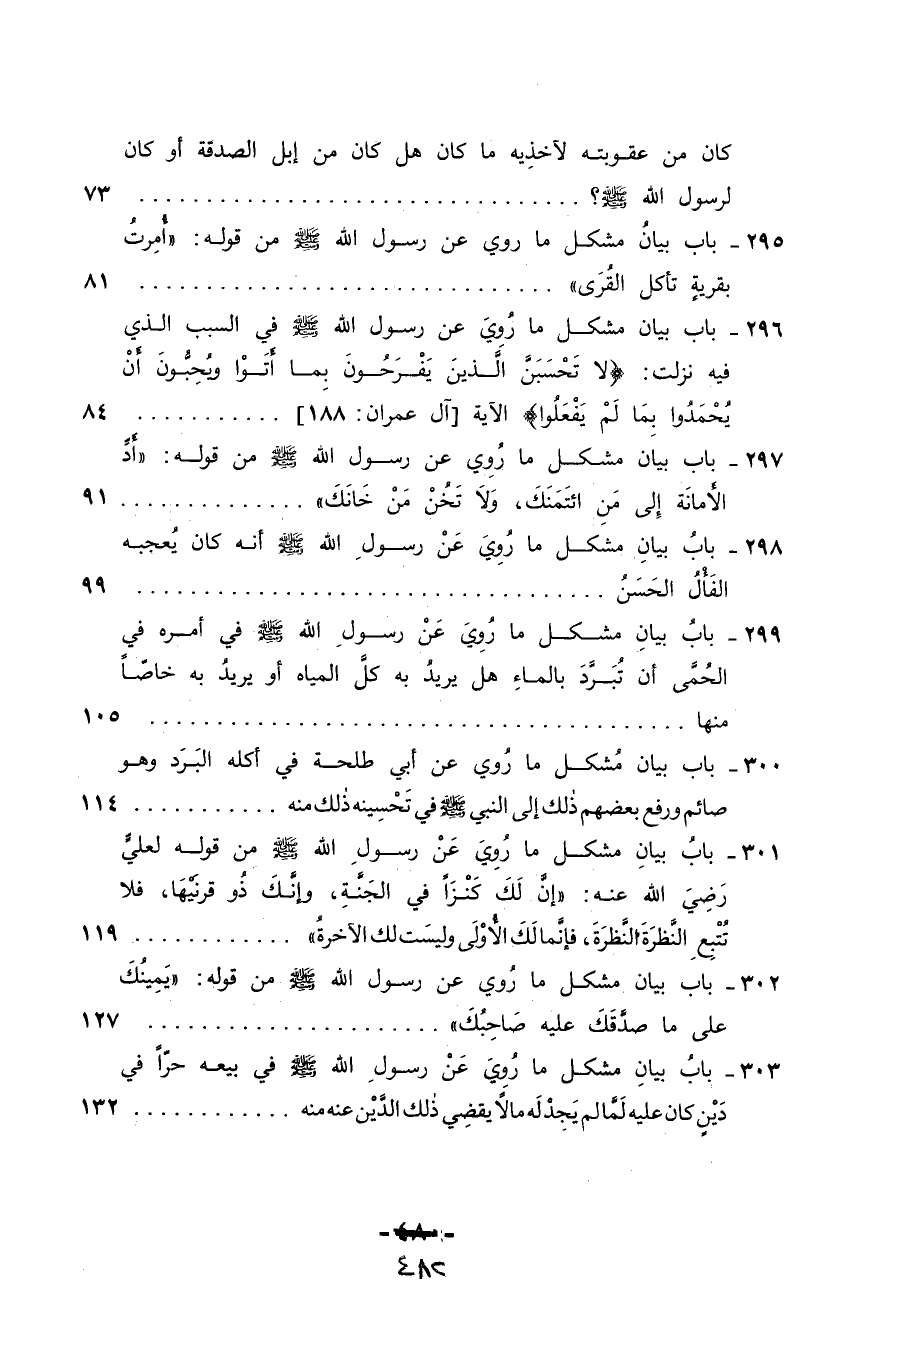 كان من عقوبته لآخذِيه ما كان هل كان من إبل الصدقة أو كان
لرسول الله ﷺ؟ . . . . . . . . . . . . . . . . . . . . . . . . . . . . . . . . ٧٣
٢٩٥ ـ باب بيانُ مشكل ما روي عن رسول الله ﷺ من قوله: «أُمِرتُ
بقريةٍ تأكل القُرَى» . . . . . . . . . . . . . . . . . . . . . . . . . . . . . . ٨١
٢٩٦ ـ باب بيان مشكل ما رُوِيَ عن رسول الله ﷺ في السبب الذي
فيه نزلت: ﴿لا تَحْسَبَنَّ الَّذينَ يَفْرَحُونَ بِما أَتَوْا ويُحِبُّونَ أَنْ
يُحْمَدُوا بِمَا لَمْ يَفْعَلُوا﴾ الآية [آل عمران: ١٨٨] . . . . . . . . . . . ٨٤
٢٩٧ ـ باب بيان مشكل ما رُوي عن رسول الله ﷺ من قوله: «أَدِّ
الأمانَة إلى مَنِ ائتَمَنَكَ، وَلَا تَخُنْ مَنْ خَانَكَ» . . . . . . . . . . . . . . ٩١
٢٩٨ ـ بابُ بيانِ مشكل ما رُوِيَ عَنْ رسولِ الله ﷺ أنه كان يُعجبه
الفَأْلُ الحَسَنُ . . . . . . . . . . . . . . . . . . . . . . . . . . . . . . . . . . . ٩٩
٢٩٩ ـ بابُ بيانِ مشكل ما رُوِيَ عَنْ رسولِ الله ﷺ في أمره في
الحُمَّى أن تُبَرَّدَ بالماءِ هل يريدُ به كلَّ المياه أو يريدُ به خاصّاً
منها . . . . . . . . . . . . . . . . . . . . . . . . . . . . . . . . . . . . . . . . ١٠٥
٣٠٠ ـ باب بيان مُشكل ما رُوي عن أبي طلحة في أكله البَرَد وهو
صائم ورفع بعضهم ذٰلك إلى النبي ﷺ في تَحْسِينه ذٰلك منه . . . . . . . . . . . ١١٤
٣٠١ ـ بابُ بيانِ مشكل ما رُوِيَ عَنْ رسولِ الله ﷺ من قوله لعليٍّ
رَضِيَ الله عنه: «إنَّ لَكَ كَنْزَاً في الجَنَّةِ، وإنَّكَ ذُو قرنَيْهَا، فلا
تُتْبِعِ النَّظرَةَ النَّظرَةَ، فإنَّما لَكَ الأُوْلَى وليسَت لك الآخرةُ» . . . . . . . . . . . . ١١٩
٣٠٢ ـ باب بيان مشكل ما رُوي عن رسول الله ﷺ من قوله: «يَمِينُكَ
على ما صدَّقَكَ عليه صَاحِبُكَ» . . . . . . . . . . . . . . . . . . . . . . ١٢٧
٣٠٣ ـ بابُ بيانِ مشكل ما رُوِيَ عَنْ رسولِ الله ﷺ في بيعه حرّاً في
دَيْنٍ كان عليه لَمَّا لم يَجِدْ لَه مالاً يقضِي ذٰلك الدَّيْن عنه منه . . . . . . . . . . . . ١٣٢
٤٨٢